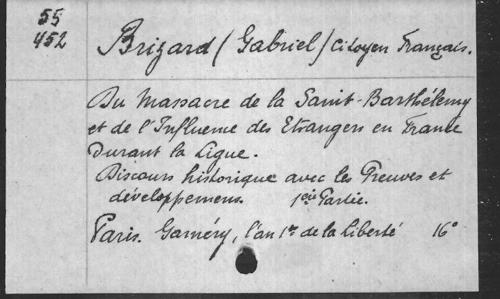 55
452
Brizard (Gabriel) citoyen Français.
Du Massacre de la Saint-Barthélemy
et de l'Influence des Etrangers en France
Durant la Ligue.
Discours historique avec les Preuves et
développemens. 1ère Partie.
Paris. Garnéry, l'an 1er de la Liberté 16°